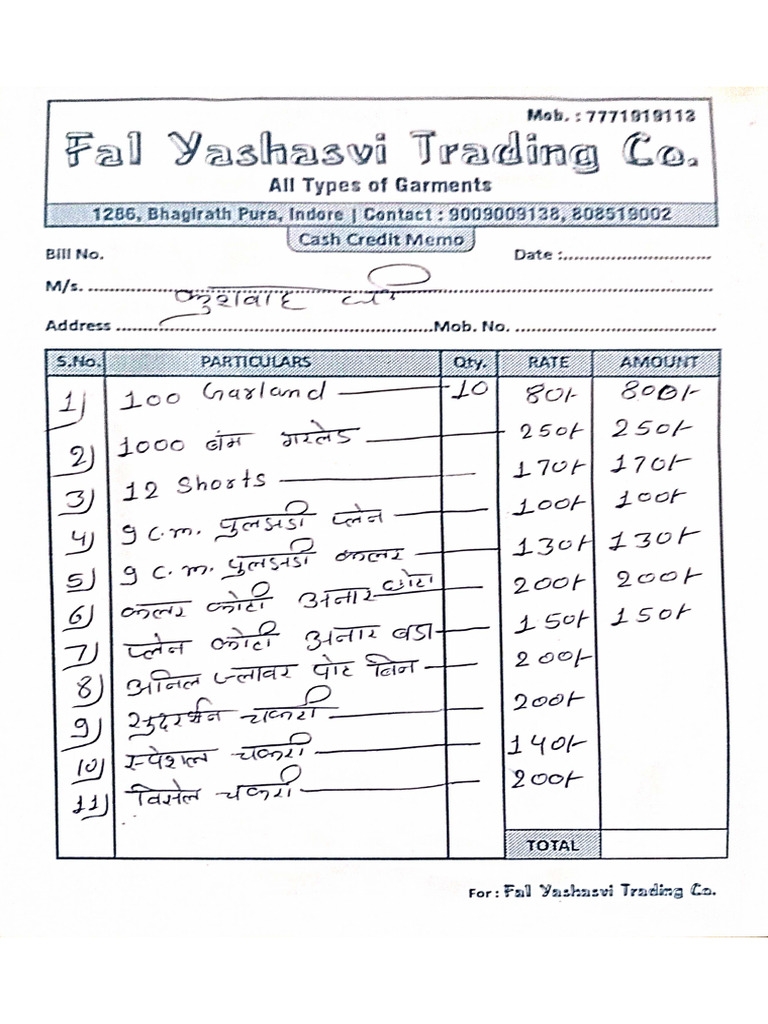 Mob. : 7771919113
Fal Yashasvi Trading Co.
All Types of Garments
1286, Bhagirath Pura, Indore | Contact : 9009009138, 808519002
Cash Credit Memo
Bill No. Date :
M/s. कुशवाह जी
Address Mob. No.
S.No. PARTICULARS Qty. RATE AMOUNT
1) 100 Garland 10 80/- 800/-
2) 1000 बंम गरलेड 250/- 250/-
3) 12 Shorts 170/- 170/-
4) 9 c.m. फुलझडी प्लेन 100/- 100/-
5) 9 c.m. फुलझडी कलर 130/- 130/-
6) कलर कोटी अनार छोटा 200/- 200/-
7) प्लेन कोटी अनार बडा 150/- 150/-
8) अनिल फ्लावर पोट बिन 200/-
9) सुदरर्शन चकरी 200/-
10) स्पेशल चकरी 140/-
11) विसेल चकरी 200/-
TOTAL
For : Fal Yashasvi Trading Co.